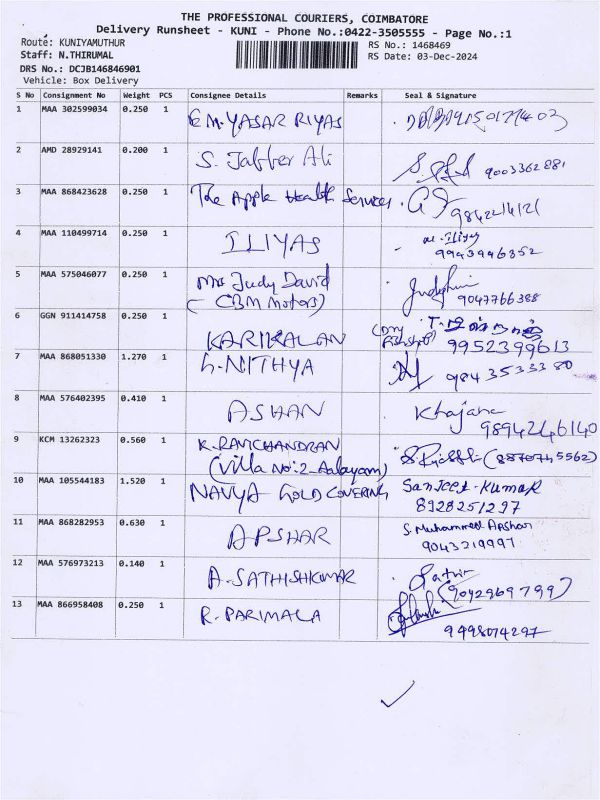 THE PROFESSIONAL COURIERS, COIMBATORE
Delivery Runsheet - KUNI - Phone No.:0422-3505555 - Page No.:1
Route: KUNIYAMUTHUR
RS No.: 1468469
Staff: N.THIRUMAL
RS Date: 03-Dec-2024
DRS No.: DCJB146846901
Vehicle: Box Delivery
S No Consignment No Weight PCS Consignee Details Remarks Seal & Signature
1 MAA 302599034 0.250 1 E M. YASAR RIYAS
2 AMD 28929141 0.200 1 S. Jabber Ali 9003362881
3 MAA 868423628 0.250 1 The Apple Health Services
4 MAA 110499714 0.250 1 ILIYAS M. Iliyas
9943946352
5 MAA 575046077 0.250 1 Mrs Judy David
(CBM Motors) 9047766388
6 GGN 911414758 0.250 1 KARIKALAN
9952399613
7 MAA 868051330 1.270 1 L. NITHYA 9843533380
8 MAA 576402395 0.410 1 ASHAN Khajana
9894246140
9 KCM 13262323 0.560 1 K. RAVICHANDRAN
(Villa No: 2 - Aalayam) (8870745562)
10 MAA 105544183 1.520 1 NAVYA GOLD COVERING Sanjeet - Kumar
8928251297
11 MAA 868282953 0.630 1 APSHAR S. Muhammed Apshar
9043219997
12 MAA 576973213 0.140 1 A. SATHISHKUMAR
(9042969799)
13 MAA 866958408 0.250 1 R. PARIMALA
9498074297